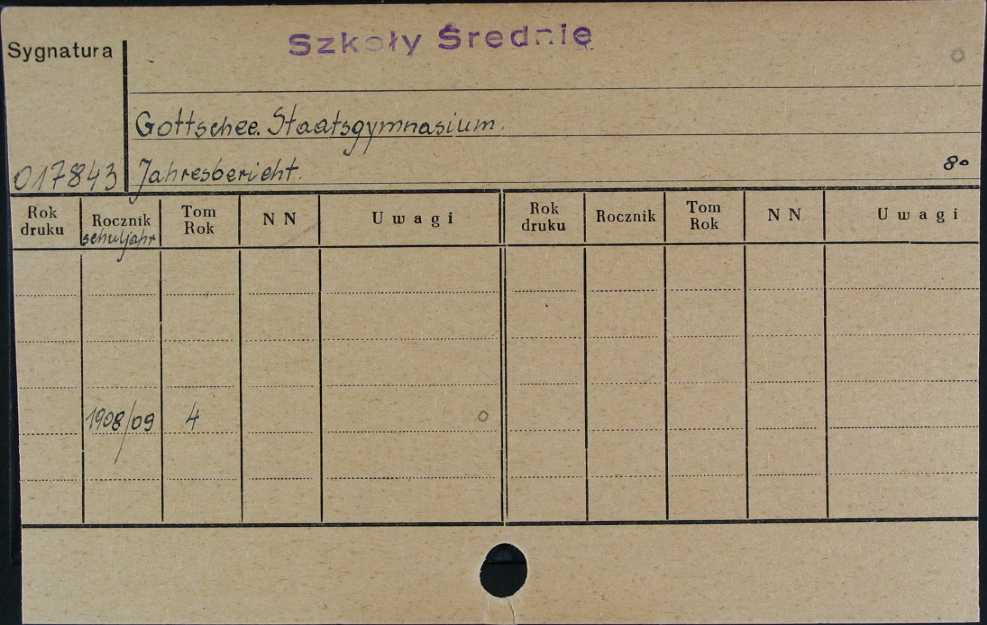 Szkoły Średnie
Sygnatura
Gottschee. Staatsgymnasium.
017843 Jahresbericht. 8°
Rok druku Rocznik Schuljahr Tom Rok N N Uwagi Rok druku Rocznik Tom Rok N N Uwagi
1908/09 4